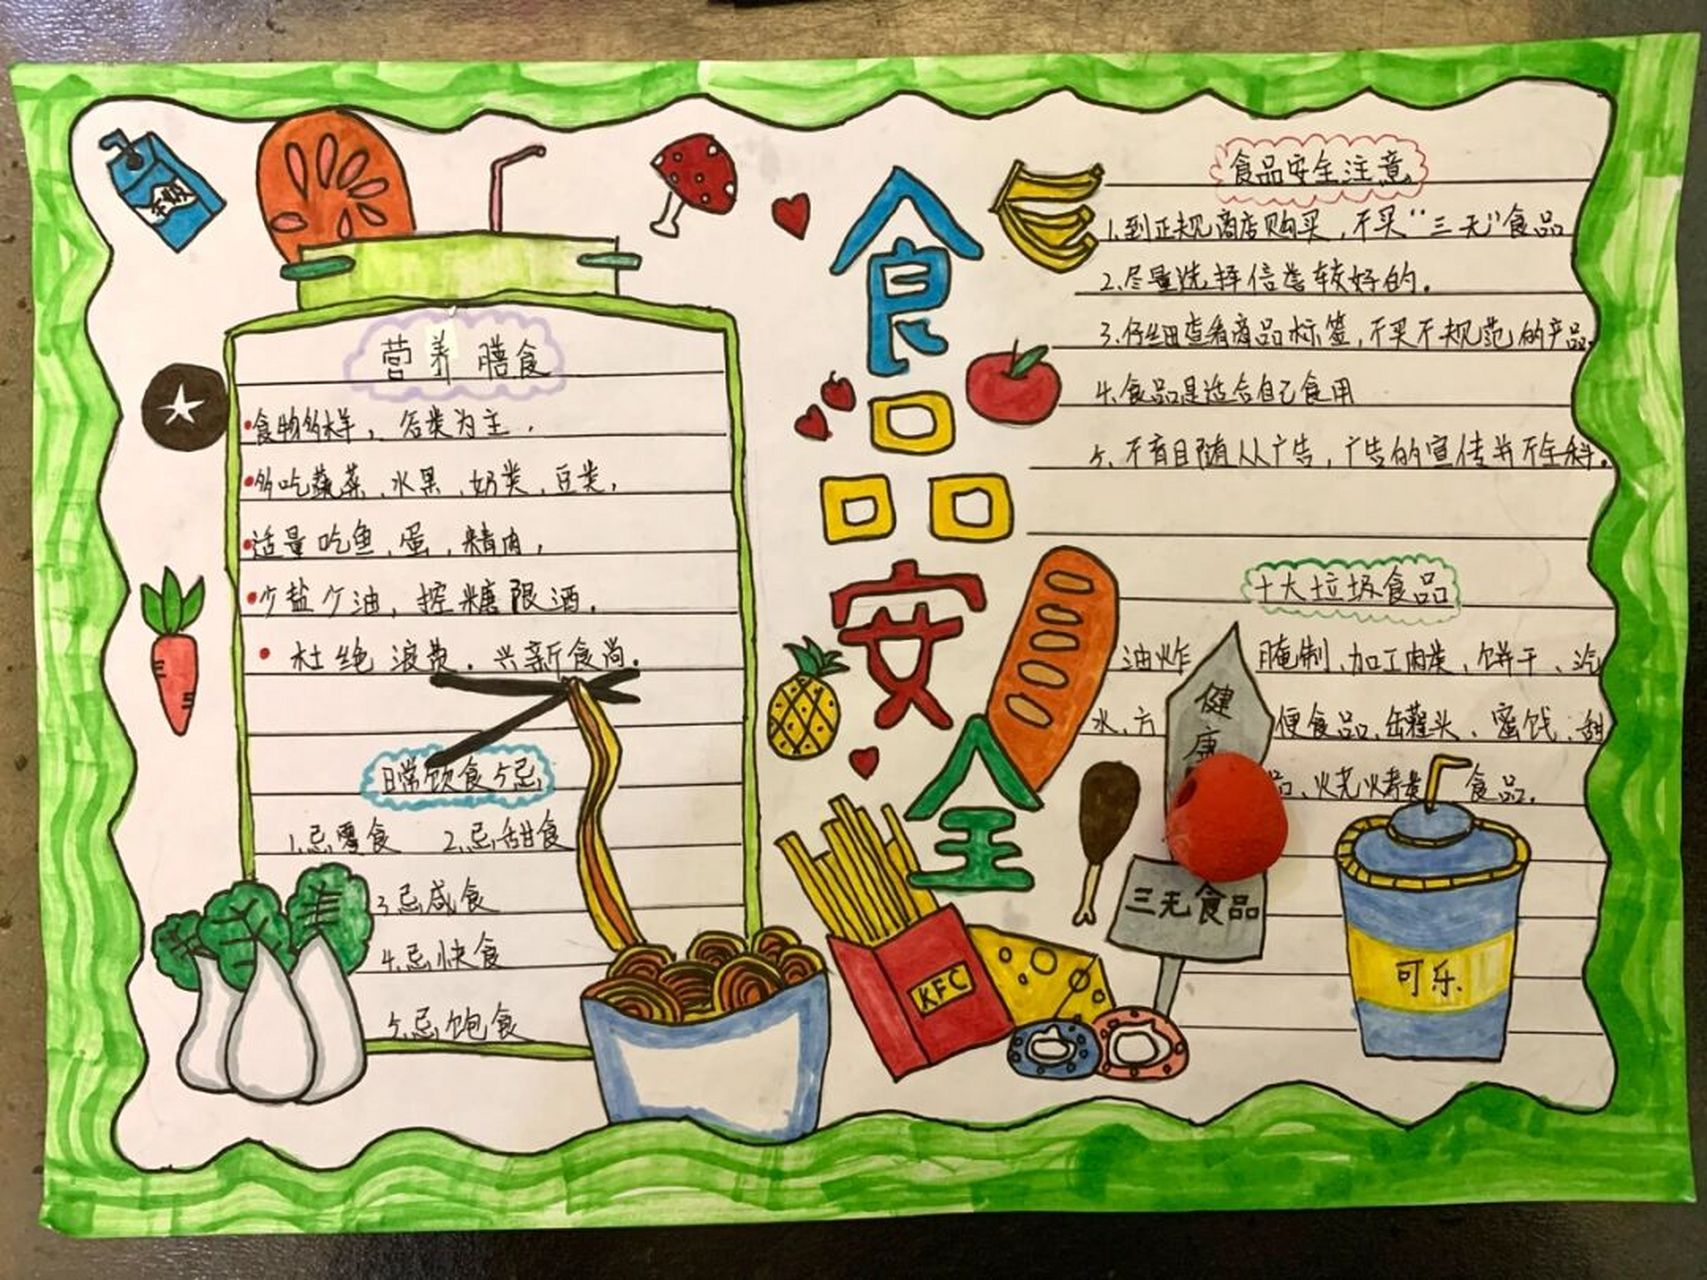 营养膳食
食物多样，谷类为主.
多吃蔬菜、水果、奶类、豆类，
适量吃鱼、蛋，精肉，
少盐少油，控糖限酒.
杜绝浪费.兴新食尚.
日常饮食5忌
1.忌零食 2.忌甜食
3.忌咸食
4.忌快食
5.忌饱食
食品安全
KFC
食品安全注意
1.到正规商店购买，不买“三无”食品
2.尽量选择信誉较好的.
3.仔细查看商品标签，不买不规范的产品
4.食品是适合自己食用
5.不盲目随从广告，广告的宣传并不全科.
十大垃圾食品
油炸 腌制、加工肉类、饼干、汽
水、方 便食品、罐头、蜜饯、甜
品、烧烤类 食品.
健康
三无食品
可乐